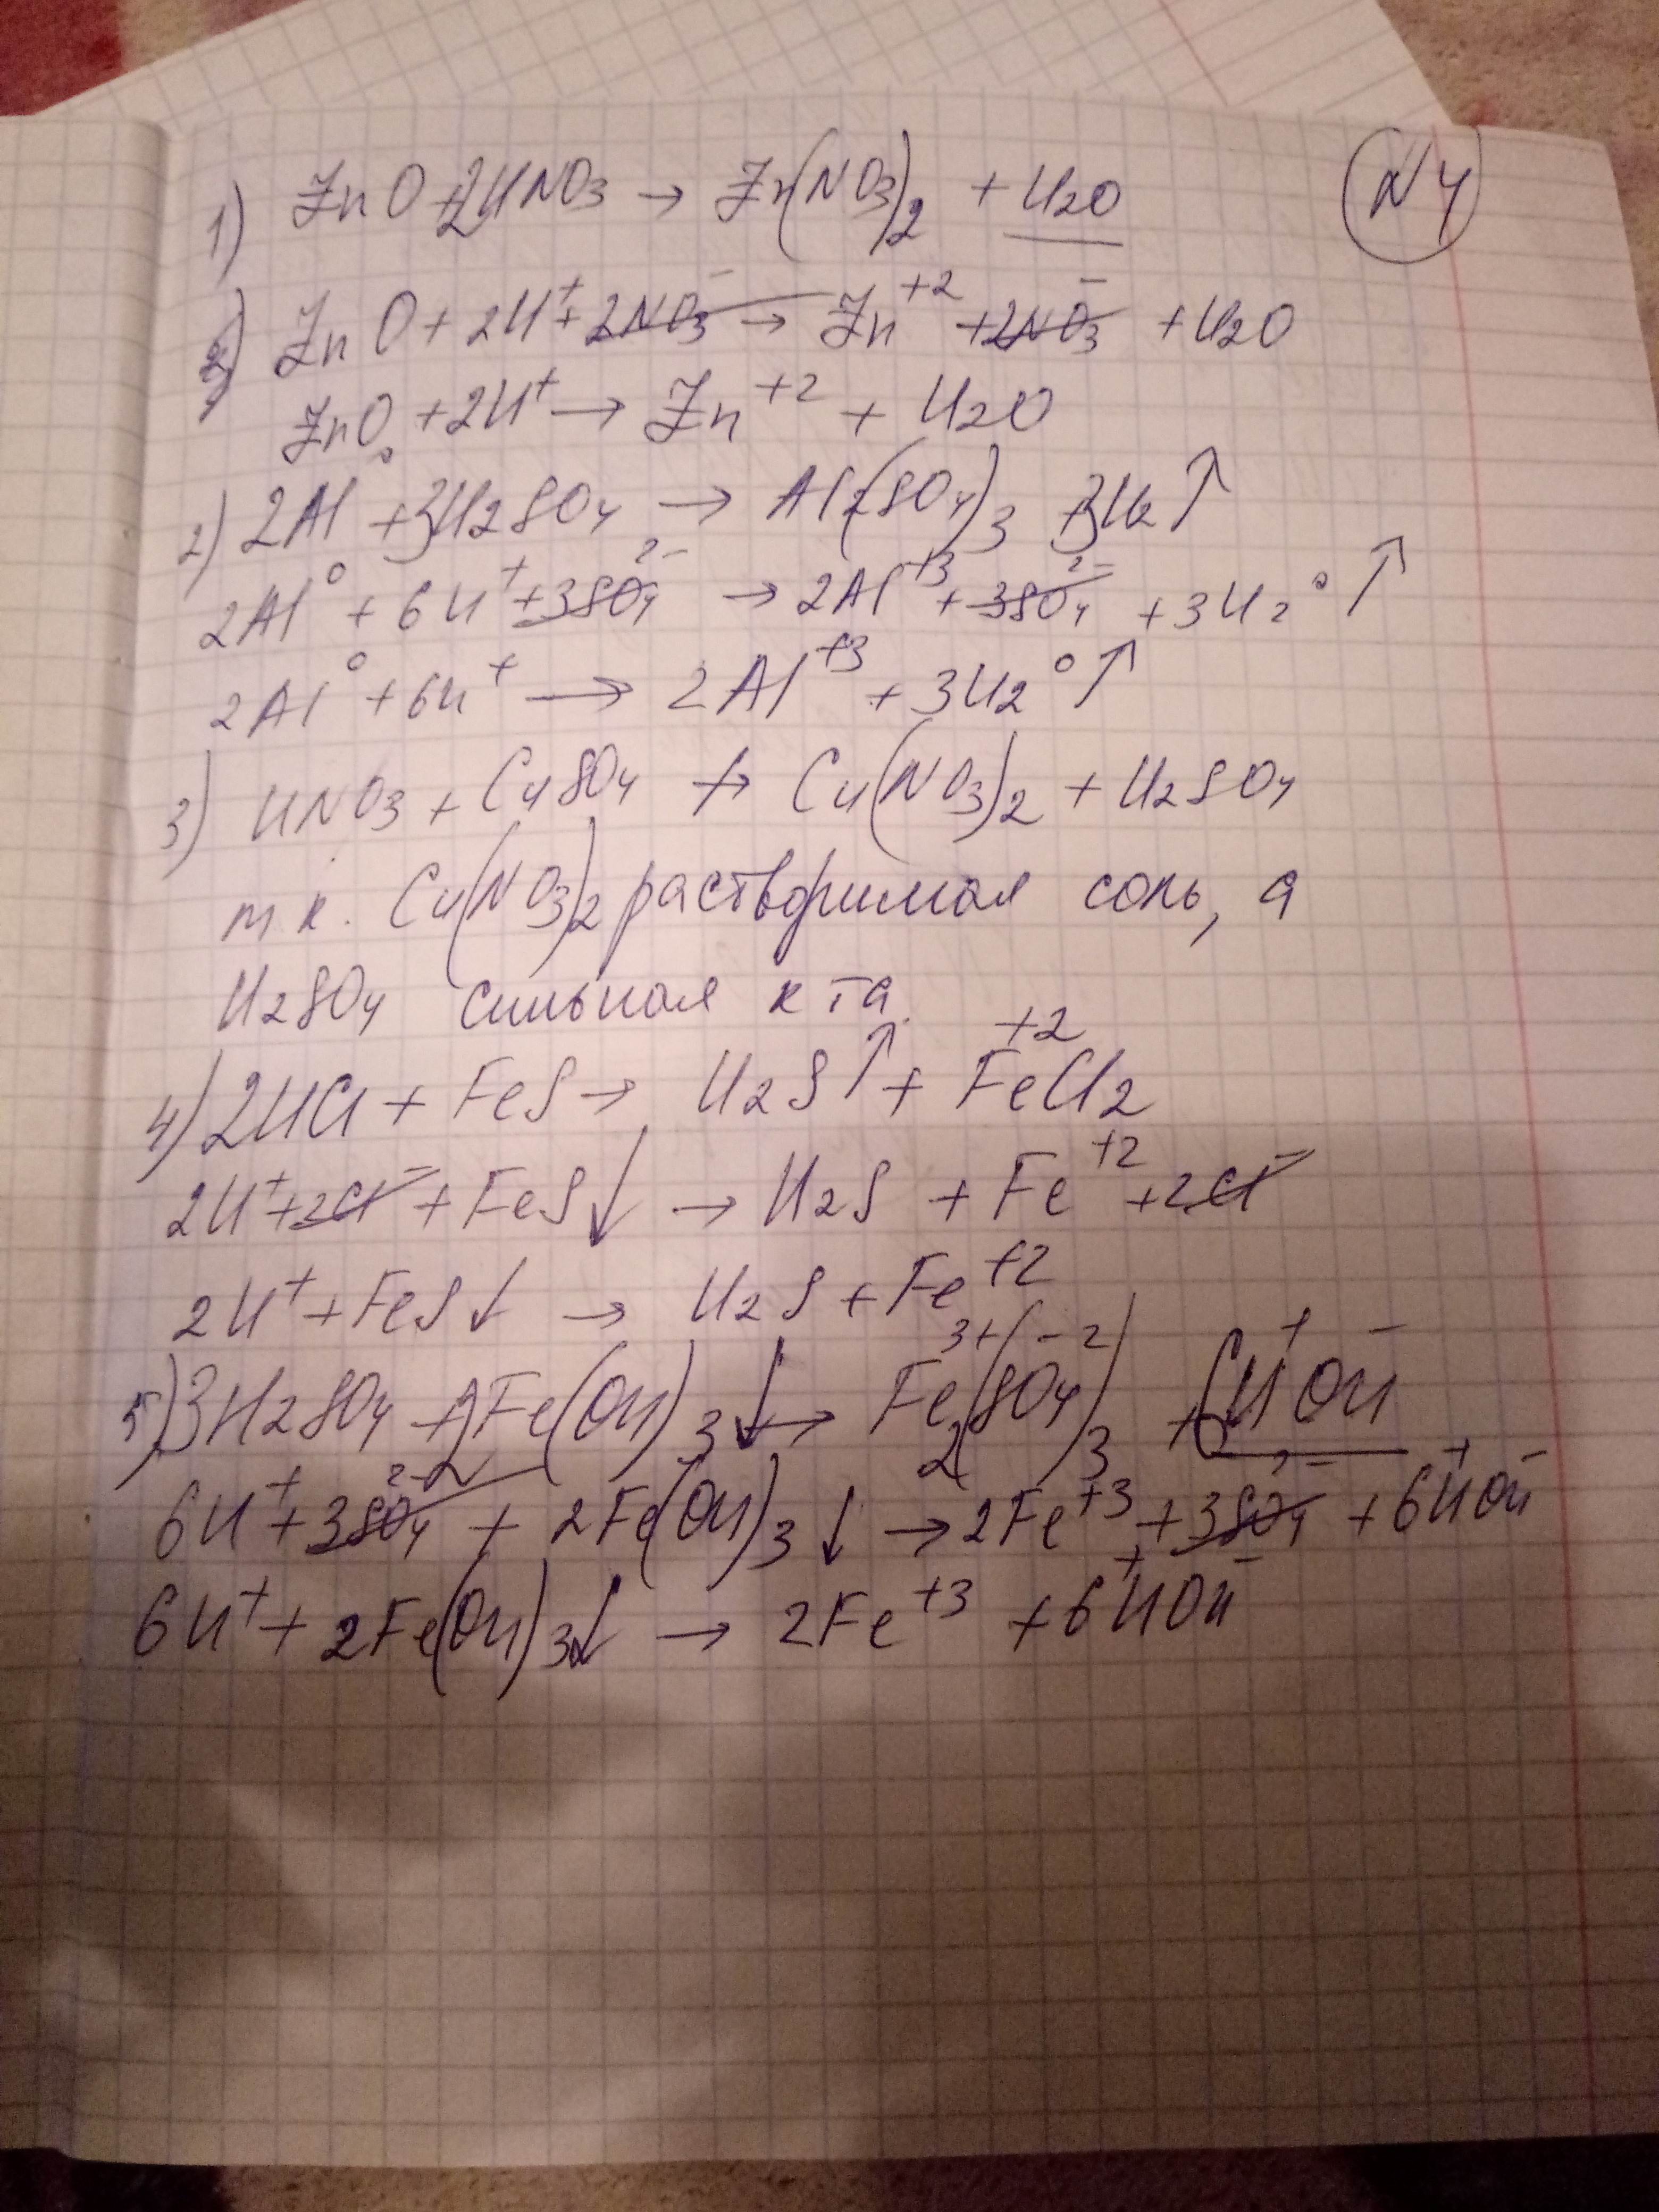 N4
1) ZnO + 2HNO3 → Zn(NO3)2 + H2O
ZnO + 2H⁺ + 2NO3⁻ → Zn⁺² + 2NO3⁻ + H2O
ZnO + 2H⁺ → Zn⁺² + H2O
2) 2Al⁰ + 3H2SO4 → Al2(SO4)3 + 3H2↑
2Al⁰ + 6H⁺ + 3SO4²⁻ → 2Al⁺³ + 3SO4²⁻ + 3H2⁰↑
2Al⁰ + 6H⁺ → 2Al⁺³ + 3H2⁰↑
3) HNO3 + CuSO4 ↛ Cu(NO3)2 + H2SO4
т к. Cu(NO3)2 растворимая соль, а
H2SO4 сильная к та.
4) 2HCl + FeS → H2S↑ + Fe⁺²Cl2
2H⁺ + 2Cl⁻ + FeS↓ → H2S + Fe⁺² + 2Cl⁻
2H⁺ + FeS↓ → H2S + Fe⁺²
5) 3H2SO4 + 2Fe(OH)3↓ → Fe2³⁺(SO4⁻²)3 + 6H⁺OH⁻
6H⁺ + 3SO4²⁻ + 2Fe(OH)3↓ → 2Fe⁺³ + 3SO4²⁻ + 6H⁺OH⁻
6H⁺ + 2Fe(OH)3↓ → 2Fe⁺³ + 6H⁺OH⁻